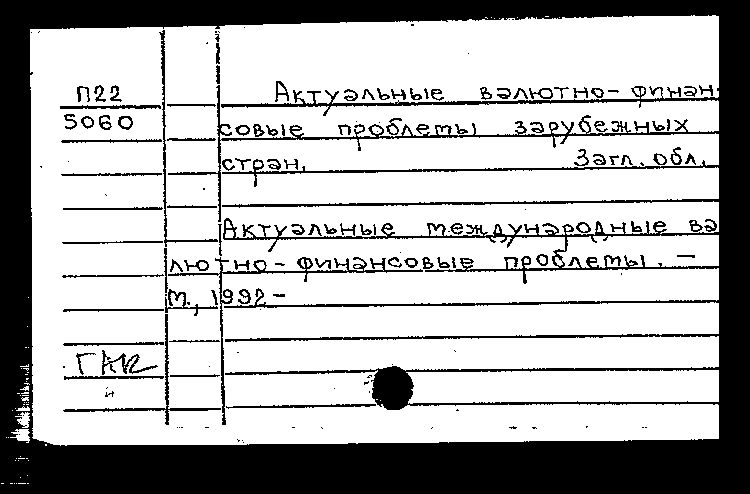 П22
5060
Актуальные валютно-финан
совые проблемы зарубежных
стран. Загл. обл.
Актуальные международные ва
лютно-финансовые проблемы. —
М., 1992-